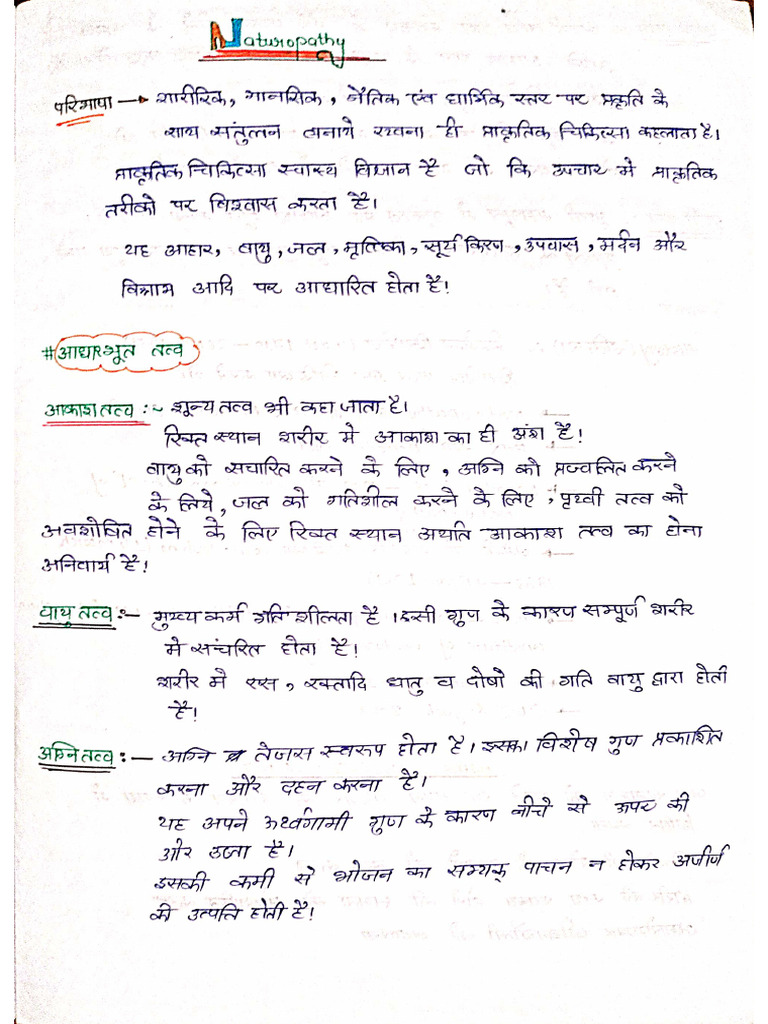 Naturopathy
परिभाषा → शारीरिक, मानसिक, नैतिक एंव धार्मिक स्तर पर प्रकृति के
साथ संतुलन बनाये रखना ही प्राकृतिक चिकित्सा कहलाता है।
प्राकृतिक चिकित्सा स्वास्थ विज्ञान है जो कि उपचार मे प्राकृतिक
तरीको पर विश्वास करता है।
यह आहार, वायु, जल, मृत्तिका, सूर्य किरण, उपवास, मर्दन और
विश्राम आदि पर आधारित होता है!
# आधारभूत तत्व
आकाश तत्व :- शून्य तत्व भी कहा जाता है।
रिक्त स्थान शरीर मे आकाश का ही अंश है!
वायु को सचारित करने के लिए, अग्नि को प्रज्वलित करने
के लिये, जल को गतिशील करने के लिए, पृथ्वी तत्व को
अवशोषित होने के लिए रिक्त स्थान अर्थात आकाश तत्व का होना
अनिवार्य है!
वायु तत्व :- मुख्य कर्म गति शीलता है। इसी गुण के कारण सम्पूर्ण शरीर
मे संचरित होता है!
शरीर मे रस, रक्तादि धातु व दोषो की गति वायु द्वारा होती
है!
अग्नि तत्व :- अग्नि तेजस स्वरूप होता है। इसका विशेष गुण प्रकाशित
करना और दहन करना है।
यह अपने ऊर्ध्वगामी गुण के कारण नीचे से ऊपर की
ओर उठता है।
इसकी कमी से भोजन का सम्यक् पाचन न होकर अजीर्ण
की उत्पति होती है!